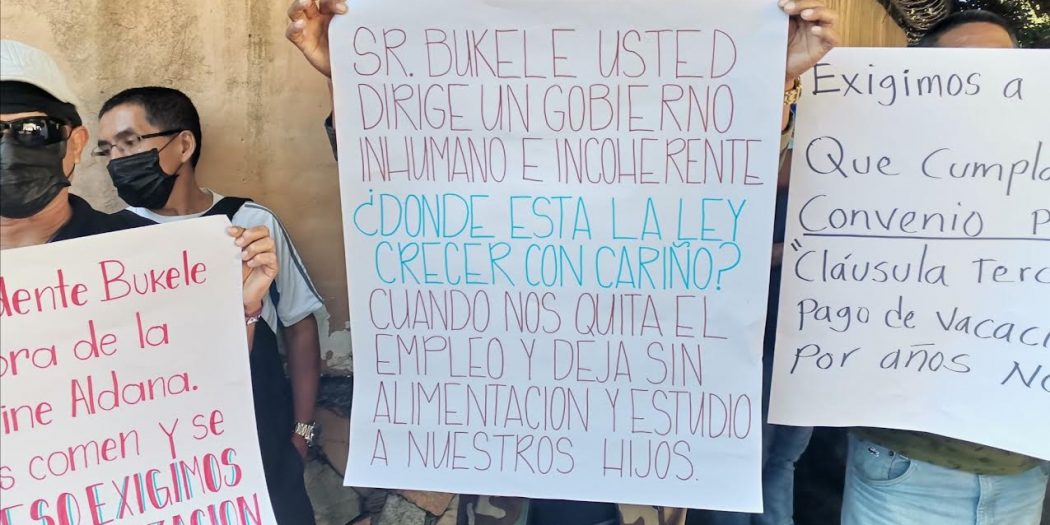 SR. BUKELE USTED
DIRIGE UN GOBIERNO
INHUMANO E INCOHERENTE
¿DONDE ESTA LA LEY
CRECER CON CARIÑO?
CUANDO NOS QUITA EL
EMPLEO Y DEJA SIN
ALIMENTACION Y ESTUDIO
A NUESTROS HIJOS.
dente Bukele
ora de la
ine Aldana.
s comen y se
ESO EXIGIMOS
ZACION
Exigimos a
Que Cumpla
Convenio P
"Cláusula Terc
Pago de Vacaci
por años No